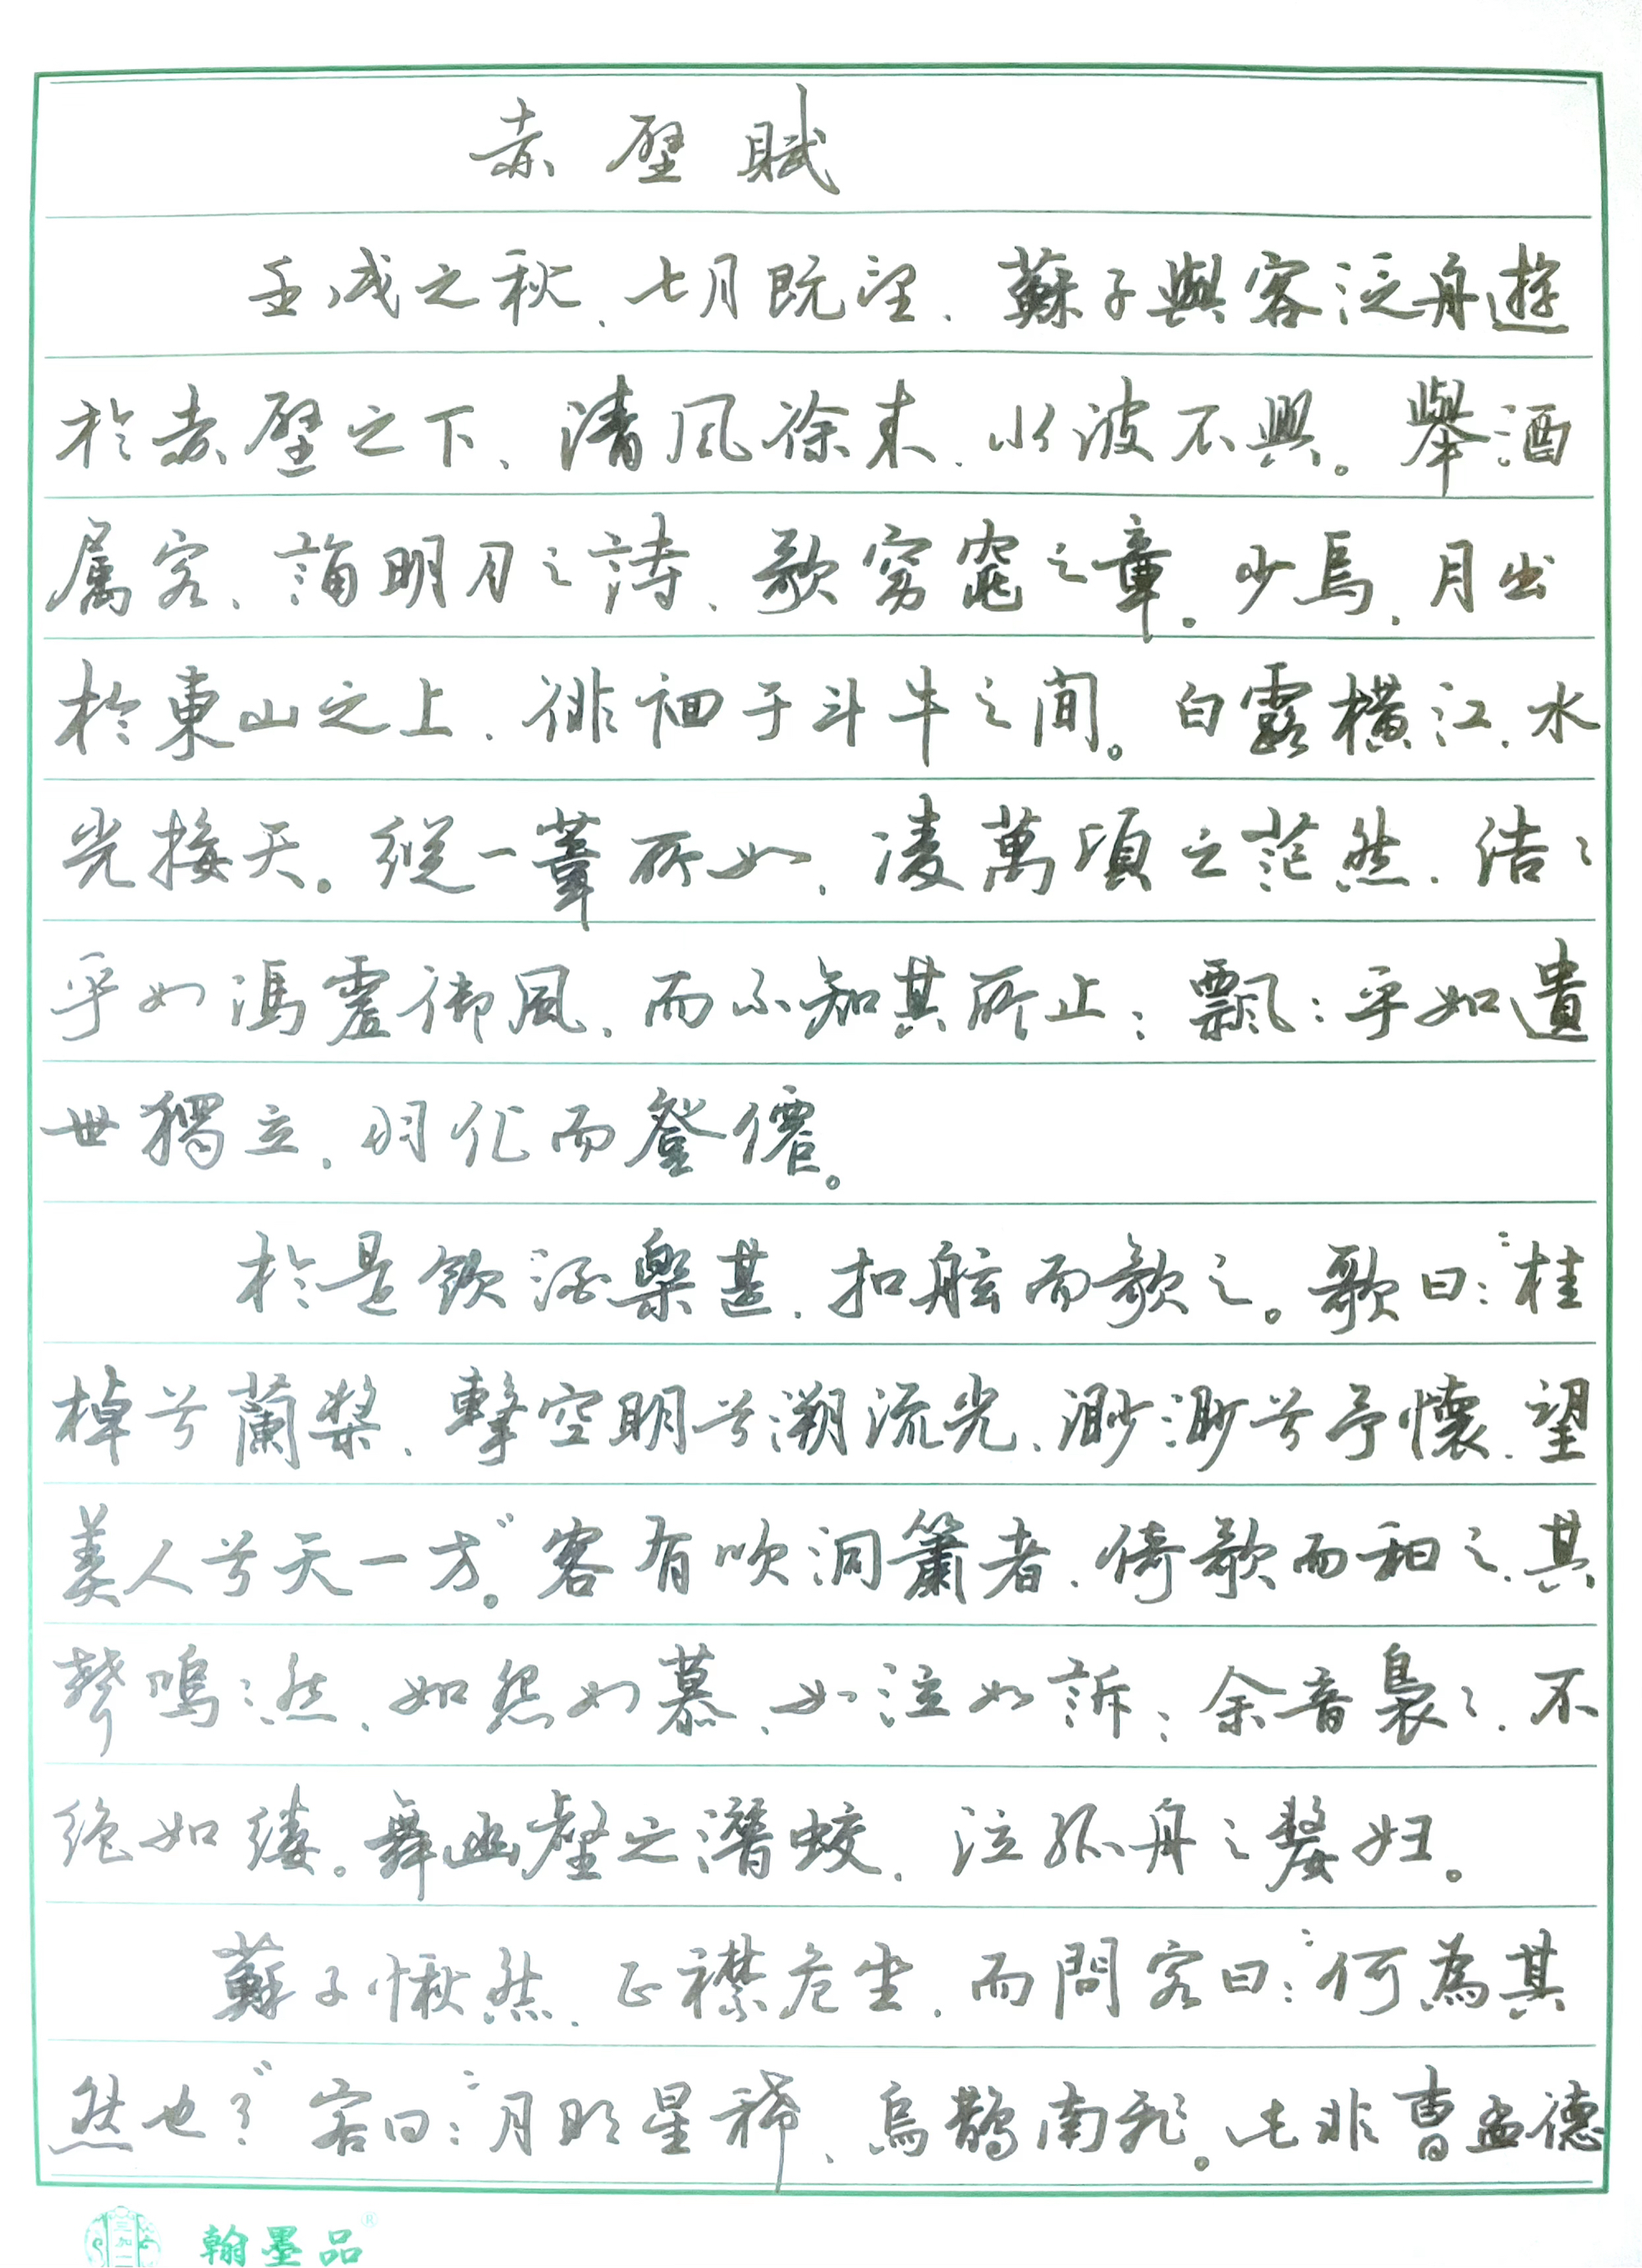 赤壁賦
壬戌之秋、七月既望、蘇子與客泛舟遊
於赤壁之下、清風徐來、水波不興。舉酒
屬客、誦明月之詩、歌窈窕之章。少焉、月出
於東山之上、徘徊于斗牛之間。白露橫江、水
光接天。縱一葦所如、凌萬頃之茫然、浩〻
乎如馮虛御風、而不知其所止；飄〻乎如遺
世獨立、羽化而登僊。
於是飲酒樂甚、扣舷而歌之。歌曰：“桂
棹兮蘭槳、擊空明兮溯流光、渺渺兮予懷、望
美人兮天一方。”客有吹洞簫者、倚歌而和之、其
聲嗚〻然、如怨如慕、如泣如訴；余音裊〻、不
絕如縷。舞幽壑之潛蛟、泣孤舟之嫠婦。
蘇子愀然、正襟危坐、而問客曰：“何為其
然也？”客曰：“月明星稀、烏鵲南飛。此非曹孟德
翰墨品®